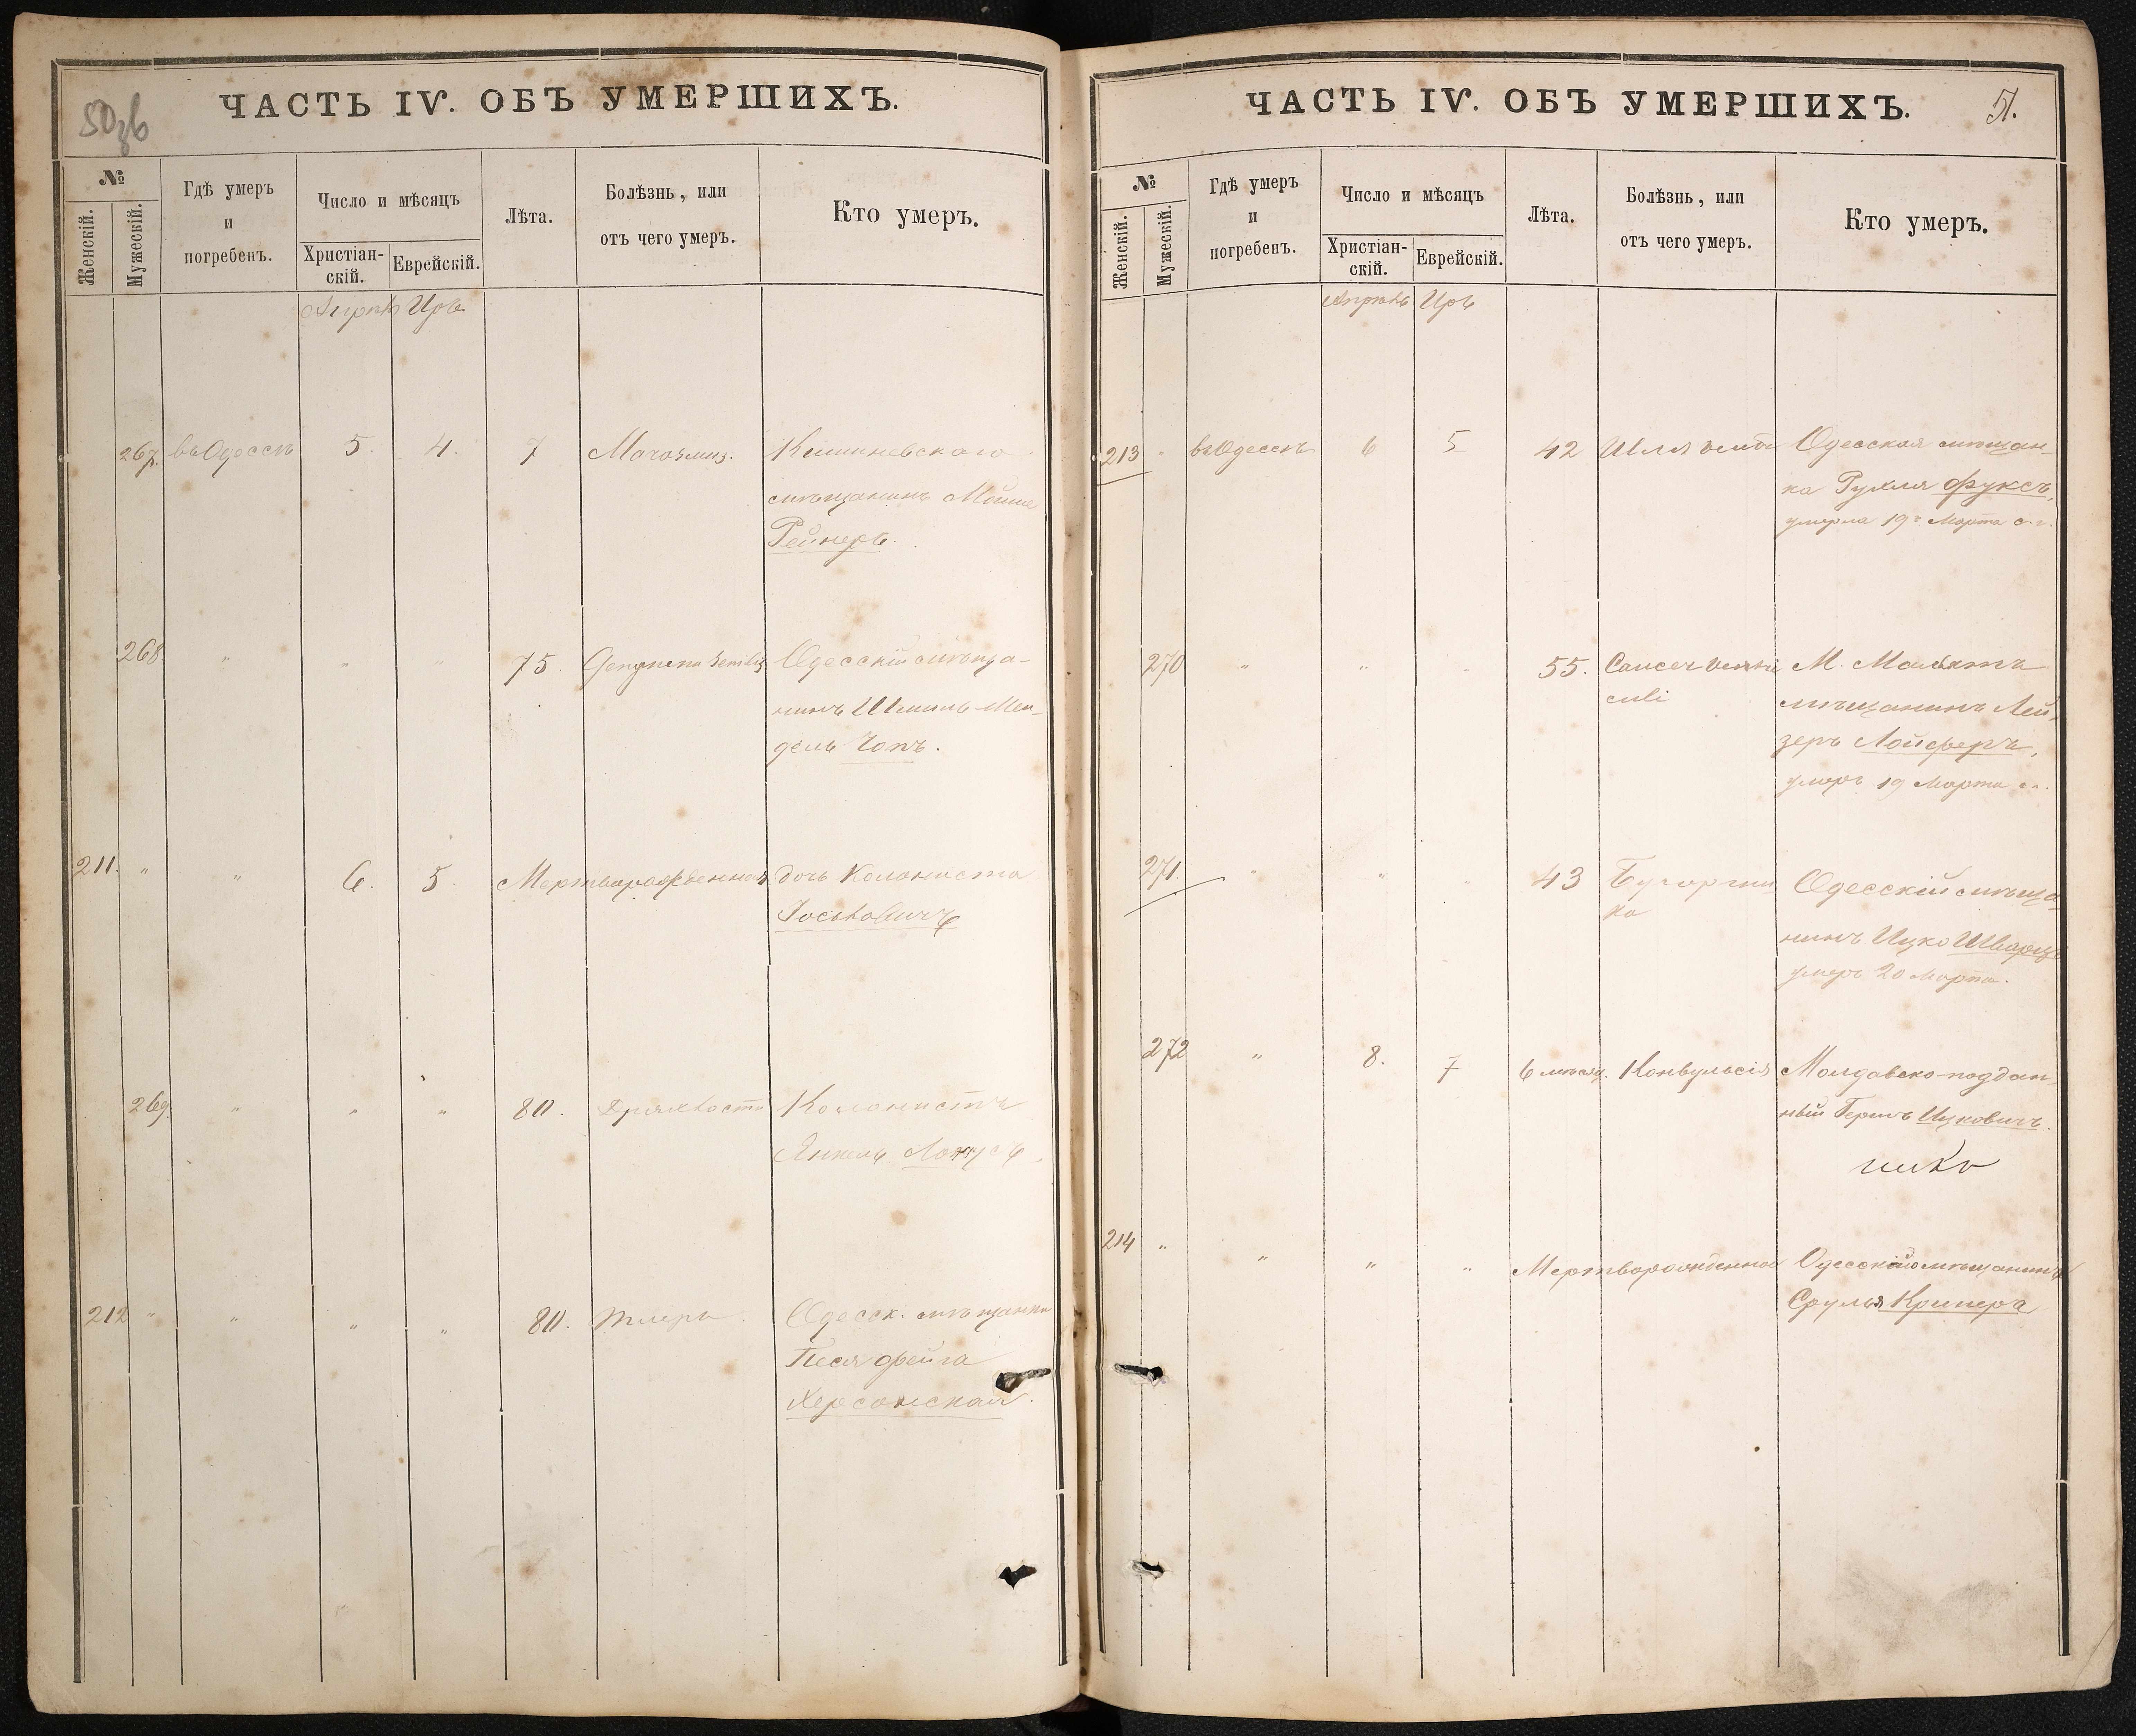 50зв
ЧАСТЬ IV. ОБЪ УМЕРШИХЪ.
№
Женскій.
Мужескій.
Гдѣ умеръ
и
погребенъ.
Число и мѣсяцъ
Христіан-
скій.
Еврейскій.
Лѣта.
Болѣзнь, или
отъ чего умеръ.
Кто умеръ.
Апрѣль Иръ
267. въ Одессѣ 5. 4. 7 Кишиневскаго
мѣщанинъ Мойше
Рейнеръ.
268 " " " 75. Gangrena senilis Одесскій мѣща-
нинъ Шмиль-Мен-
дель Чопъ.
211. " " 6. 5. Мертворожденная дочь Колониста
Іоськовичъ
269. " " " 80. Дряхлость Колонистъ
Янкель
212 " " " " 80. Одесск. мѣщанка
Песя Фейга
Херсонская.
ЧАСТЬ IV. ОБЪ УМЕРШИХЪ.
51.
№
Женскій.
Мужескій.
Гдѣ умеръ
и
погребенъ.
Число и мѣсяцъ
Христіан-
скій.
Еврейскій.
Лѣта.
Болѣзнь, или
отъ чего умеръ.
Кто умеръ.
Апрѣль Иръ
213 " въ Одессѣ 6 5 42 Одесская мѣщан-
ка Рухля Фуксъ,
умерла 19го Марта с. г.
270 " " " 55. Cancer ventri
culi
М. Маліятъ
мѣщанинъ Лей-
зеръ Лойферъ,
умеръ 19 Марта с. г.
271. " " " 43 Бугорчат
ка
Одесскій мѣща-
нинъ Ицко Шварцъ
умеръ 20 Марта.
272 " 8. 7 6 мѣсяц. Конвульсія Молдавско-поддан-
ный Гершъ Ицковичъ.
ицко
214 " " " " Мертворожденная Одесскаго мѣщанина
Сруля Кринера